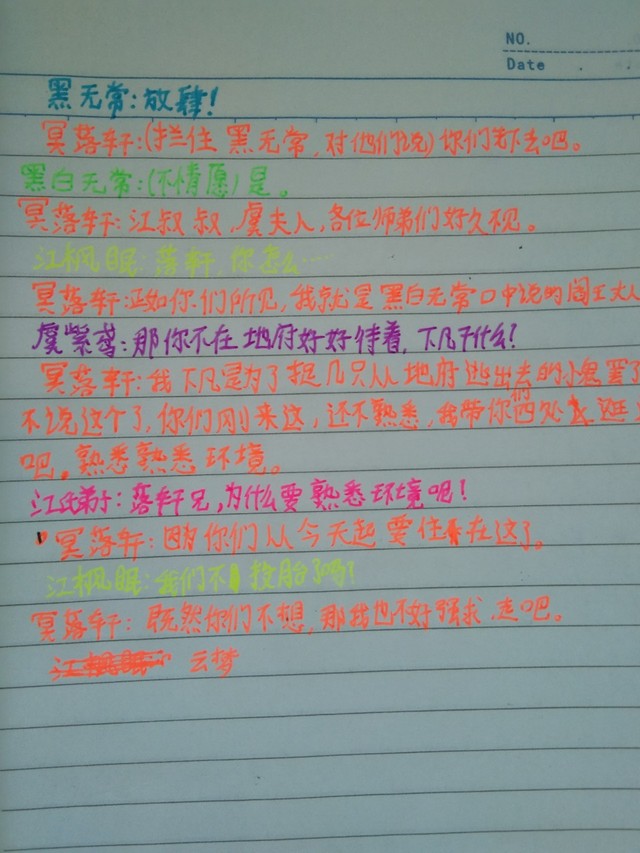 NO.
Date
黑无常:放肆!
冥落轩:(拦住 黑无常,对他们说)你们先下去吧。
黑白无常:(不情愿)是。
冥落轩:江叔叔,虞夫人,各位师弟们好久不见。
江枫眠:落轩,你怎么……
冥落轩:正如你们所见,我就是黑白无常口中说的阎王大人
虞紫鸢:那你不在地府好好待着,下凡干什么!
冥落轩:我下凡是为了捉几只从地府逃出去的小鬼罢了
不说这个了,你们刚来这,还不熟悉,我带你们四处去逛
吧,熟悉熟悉环境。
江氏弟子:落轩兄,为什么要熟悉环境呢!
冥落轩:因为你们从今天起要住在这了。
江枫眠:我们不投胎了吗?
冥落轩:既然你们不想,那我也不好强求,走吧。
江枫眠 云梦